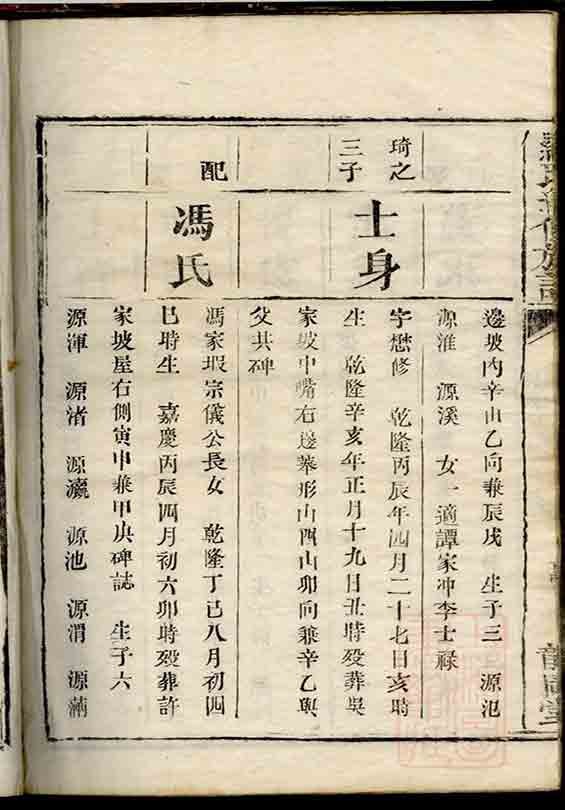 邊坡內辛山乙向兼辰戌 生子三 源氾
源淮 源溪 女一適譚家冲李士祿
琦之
三子
士身
字懋修 乾隆丙辰年四月二十七日亥時
生 乾隆辛亥年正月十九日丑時殁葬吳
家坡中嘴右邊葬形山酉山卯向兼辛乙與
父共碑
配
馮氏
馮家塅宗儀公長女 乾隆丁巳八月初四
巳時生 嘉慶丙辰四月初六卯時殁葬許
家坡屋右側寅申兼甲庚碑誌 生子六
源渾 源渚 源瀛 源池 源渭 源滿